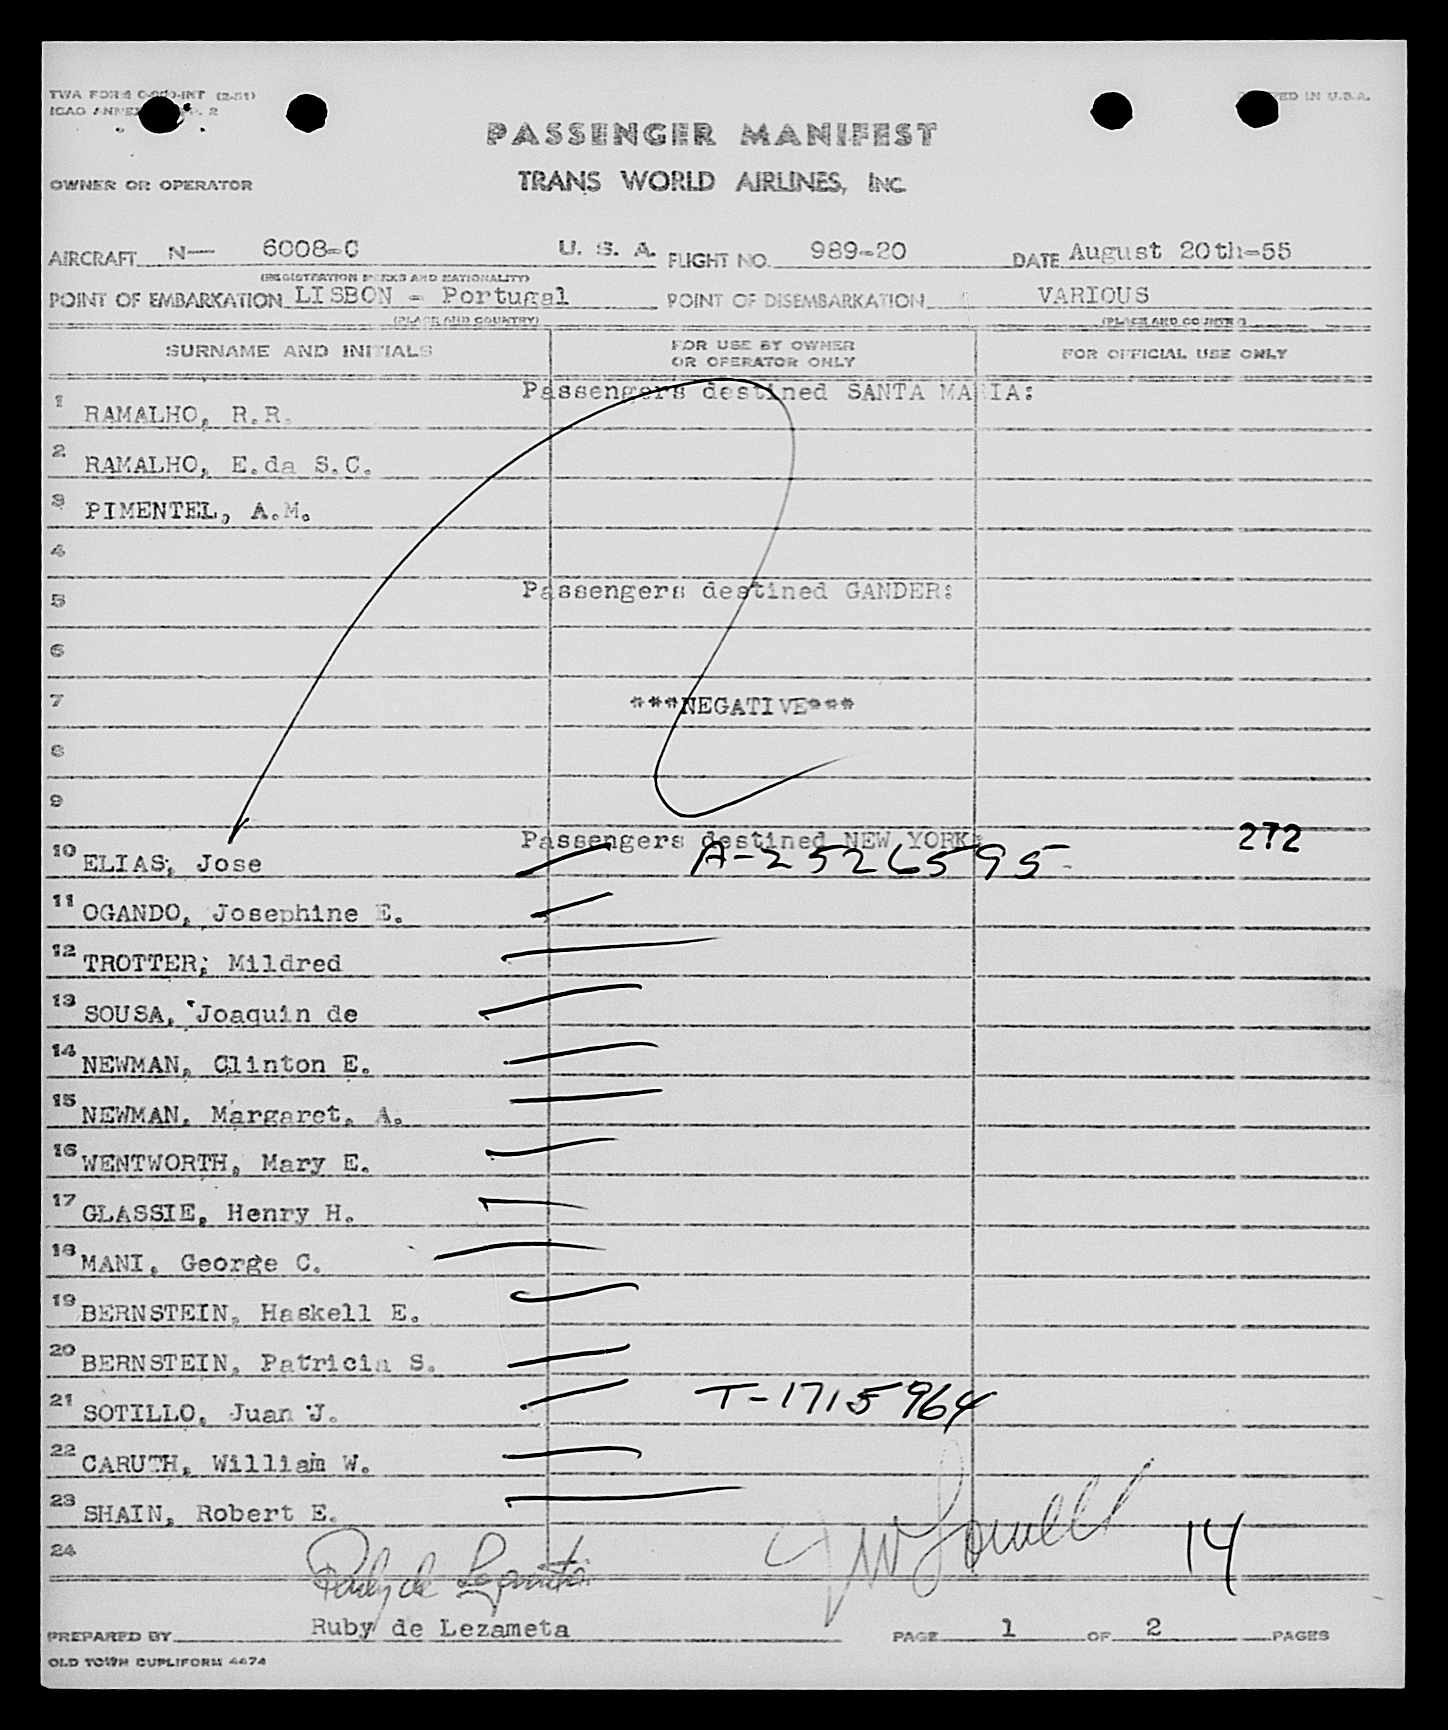 TWA FORM (2-51)
ICAO ANNEX 2
IN U.S.A.
PASSENGER MANIFEST
OWNER OR OPERATOR TRANS WORLD AIRLINES, INC.
AIRCRAFT N— 6008-C U. S. A. FLIGHT NO. 989-20 DATE August 20th-55
(REGISTRATION MARKS AND NATIONALITY)
POINT OF EMBARKATION LISBON - Portugal POINT OF DISEMBARKATION VARIOUS
(PLACE AND COUNTRY) (PLACE AND COUNTRY)
SURNAME AND INITIALS FOR USE BY OWNER OR OPERATOR ONLY FOR OFFICIAL USE ONLY
Passengers destined SANTA MARIA:
1 RAMALHO, R.R.
2 RAMALHO, E.da S.C.
3 PIMENTEL, A.M.
4
Passengers destined GANDER:
5
6
7 ***NEGATIVE***
8
9
Passengers destined NEW YORK: 272
10 ELIAS, Jose A-2526595
11 OGANDO, Josephine E.
12 TROTTER, Mildred
13 SOUSA, Joaquin de
14 NEWMAN, Clinton E.
15 NEWMAN, Margaret, A.
16 WENTWORTH, Mary E.
17 GLASSIE, Henry H.
18 MANI, George C.
19 BERNSTEIN, Haskell E.
20 BERNSTEIN, Patricia S.
21 SOTILLO, Juan J. T-1715964
22 CARUTH, William W.
23 SHAIN, Robert E.
24 14
Ruby de Lezameta
PREPARED BY Ruby de Lezameta PAGE 1 OF 2 PAGES
OLD TOWN DUPLIFORM 4474